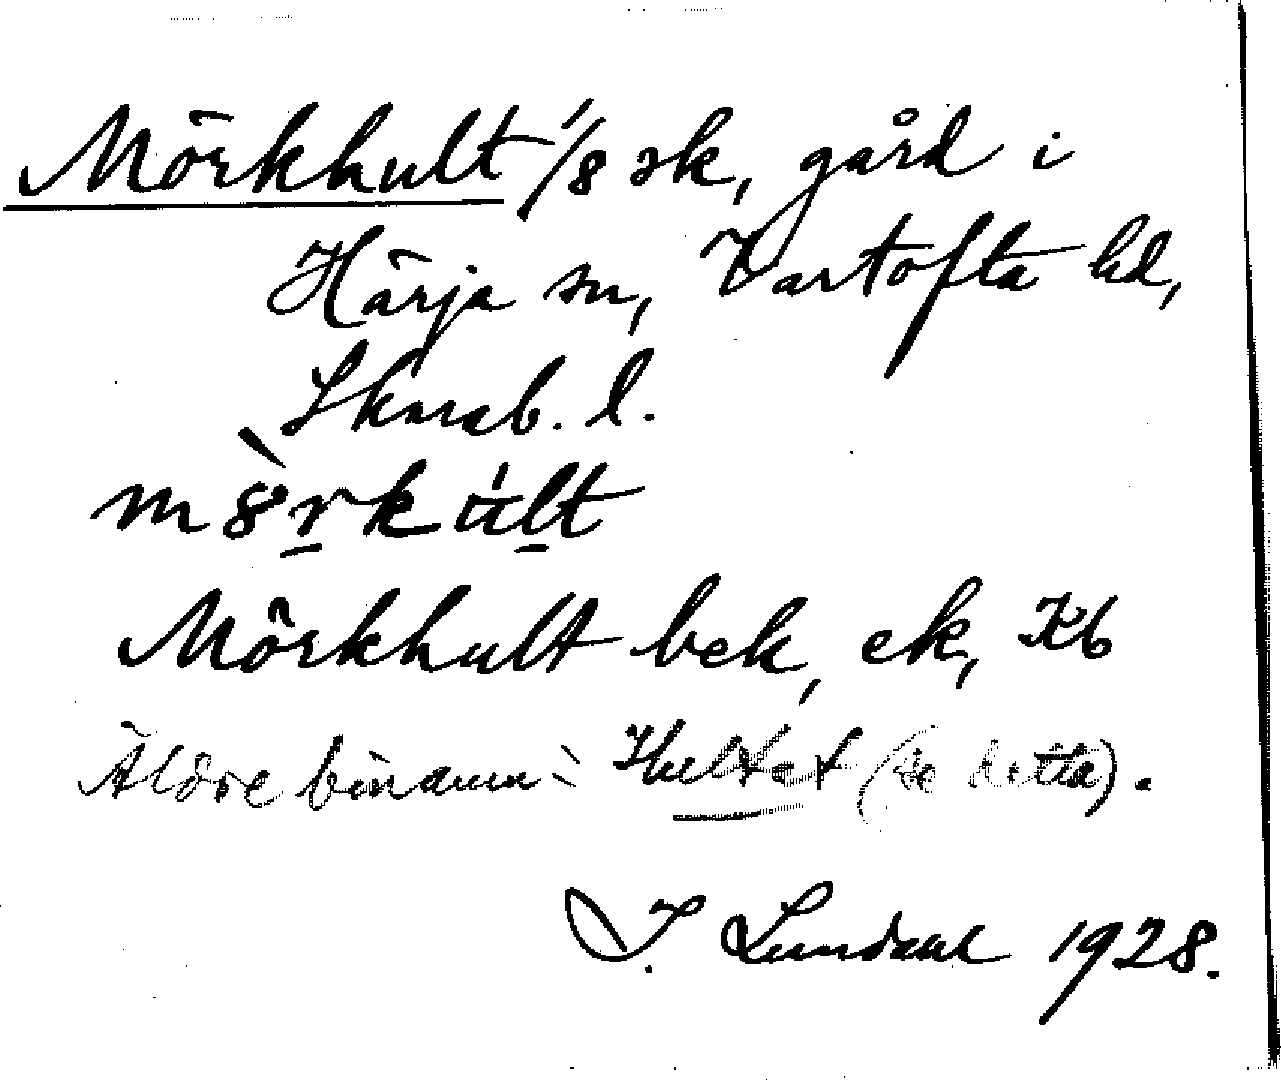 Mörkhult 1/8 sk, gård i
Härja sn, Vartofta hd,
Skarab. l.
mö̀rkúlt
Mörkhult bek, ek, Kb
Äldre binamn: Hultet (se detta).
I. Lundahl 1928.